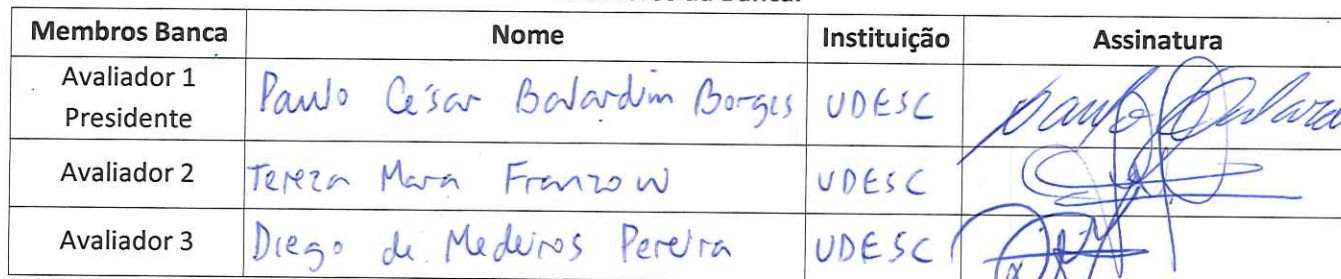 Membros Banca Nome Instituição Assinatura
Avaliador 1
Presidente Paulo César Balardim Borges UDESC
Avaliador 2 Tereza Mara Franzow UDESC
Avaliador 3 Diego de Medeiros Pereira UDESC